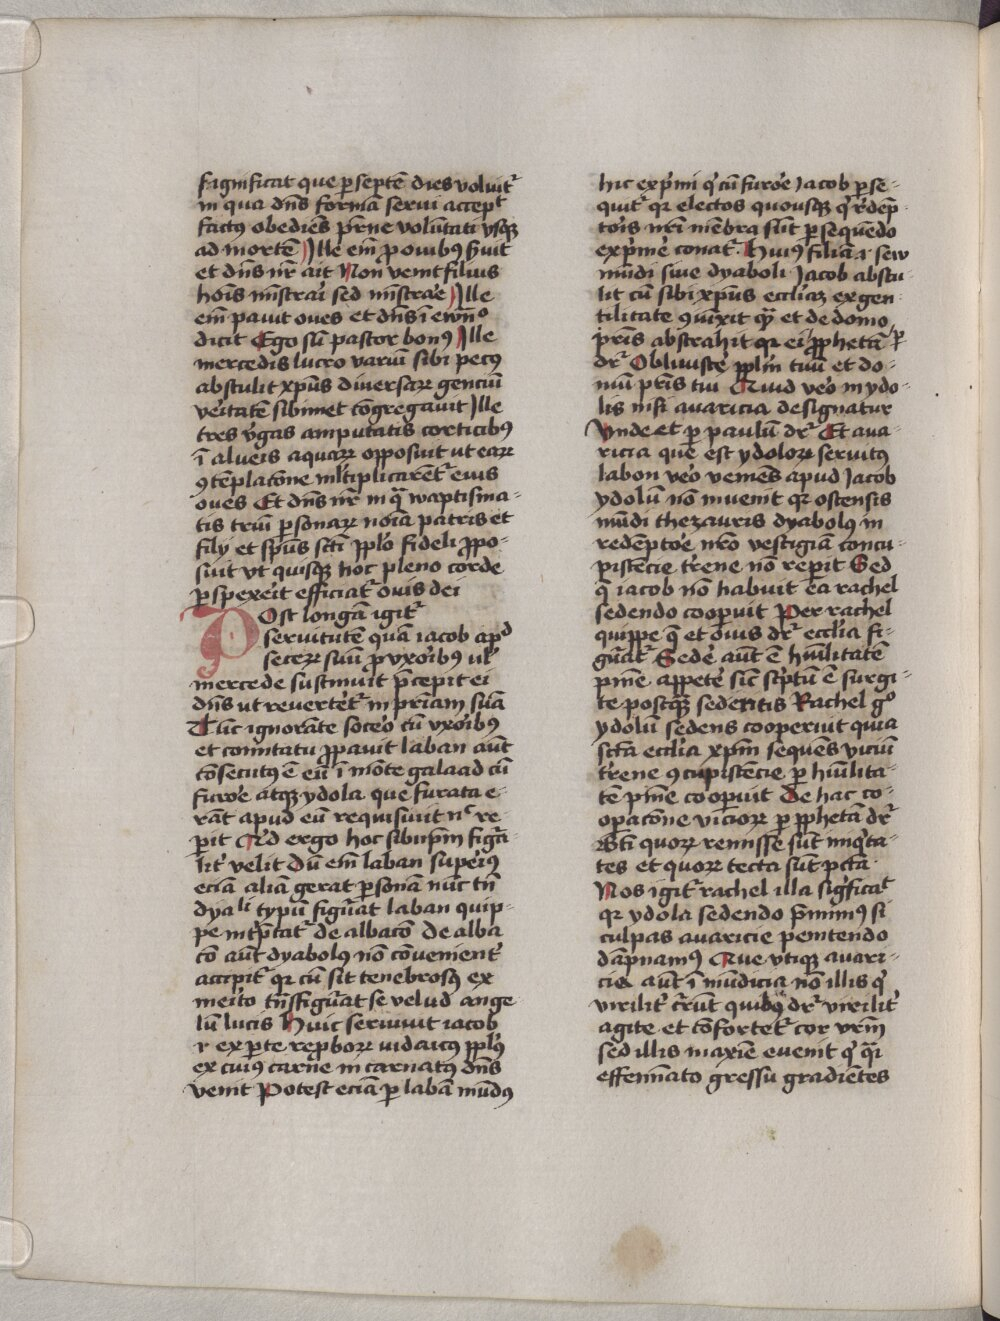 significat que p septē dies voluitᷣ
in qua dn̄s formā servi accepᵗ
factꝰ obediēs pr̄ne volūtati vsqꝫ
ad mortē Ille em̄ p ovibꝰ ẜvit
et dn̄s nr̄ ait Non venit filius
hoīs mīstrari sed mīstrare Ille
em̄ pavit oves et dn̄s ī ewn̄º
dicit Ego sū pastor bonꝰ Ille
mercedis lucro variū sibi pecꝰ
abstulit xpūs diversaꝝ genciū
veritatē sibimet cōgregavit Ille
tres vgas amputatis corticibꝰ
ī alveis aquaꝝ opposuit ut eaꝝ
ꝯtēplacōne ml̄tiplicarēt eius
oves Et dn̄s nr̄ in qᵃ waptisma-
tis triū psonaꝝ noīa patris et
filij et spūs sct̄i pplo fideli ppo-
suit vt quisqꝫ hoc pleno corde
pspexerit efficiatᷣ ovis dei
Post longā igitᷣ
servitutē quā iacob apᵈ
soceꝝ suū p vxoribꝰ ul̄
mercede sustinuit p̄cepit ei
dn̄s ut reverterētᷣ in pr̄iam suā
Tūc ignorāte socero cū vxoribꝰ
et comitatu ppavit laban aūt
cōsecutꝰ ē eū ī mōte galaad cū
furore atqꝫ ydola que furata e-
rāt apud eū requisivit nᶜ re-
pit Ad ergo hoc sibiip̄m figᷓa-
lit velit Dū em̄ laban superiꝰ
eciā aliā gerat psonā nūc tn̄
dyaˡⁱ typū figᷓat laban quip-
pe intp̄tatᷣ de albacō de alba
cō aūt dyabolꝰ nō cōvenient
accipitᷣ qꝛ cū sit tenebrosꝰ ex
merito tn̄sfigᷓat se velud ange
lū lucis Huic servivit iacob
ı ex pte repboꝝ iudaicꝰ pplꝰ
ex cuiꝰ carne incarnatꝰ dn̄s
venit Potest eciā p labā mūdꝰ
hic exp̄mi q̇ cū furore Jacob pse-
quitᷣ qꝛ electos quousqꝫ q̇ r̄dēp-
toris nr̄i mēbra sūt psequēdo
exp̄me conatᷣ Huiꝰ filiā ı sew
mūdi sive dyaboli Jacob abstu-
lit cū sibi xpūs eccliaꝫ ex gen-
tilitate ꝯiūxit qᷓ et de domo
pr̄is abstrahit qꝛ ei pphetā
drᷣ Obliviste pplm̄ tuū et do-
mū pt̄is tui Quid vero in ydo-
lis nisi avaricia designatur
Vnde et p paulū drᷣ Et ava-
ricia que est ydoloꝝ servitꝰ
labon vero veniēs apud Jacob
ydolū nō invenit qꝛ ostensis
mūdi thezauris dyabolꝰ in
redēptore nr̄o vestigiā concu-
pistēcie tr̄ene nō reperit Sed
q̄ iacob nō habuit ea rachel
sedendo cooperuit Per rachel
quippe q̄ et ovis drᷣ ecclia fi-
gᷓatᷣ Sede aūt ē humilitatē
pn̄ie appete sic̄ sc̄ptū ē surgi-
te postqᷓ sedentis Rachel gº
ydolū sedens cooperuit quia
sct̄a ecclia xp̄m sequēs viciū
tr̄ene ꝯcupistēcie p hūilita-
tē pn̄ie cooperuit De hac co-
opacōne vicioꝝ p pphetā drᷣ
Bt̄i quoꝝ remisse sūt iniqᷓta-
tes et quoꝝ tecta sūt pctā
Nos igitᷣ rachel illa sigficaᵗ
qꝛ ydola sedendo p̄mimꝰ si
culpas avaricie penitendo
dāpnamꝰ Que vtiqꝫ avari-
cie aūt ī mūdicia nō illis q̇
virilit c̄rūt quibꝰ drᷣ virilit
agite et cōfortetᷣ cor vr̄m
sed illis maxīe evenit q̇ qᷓi
effeminato gressu gradiētes